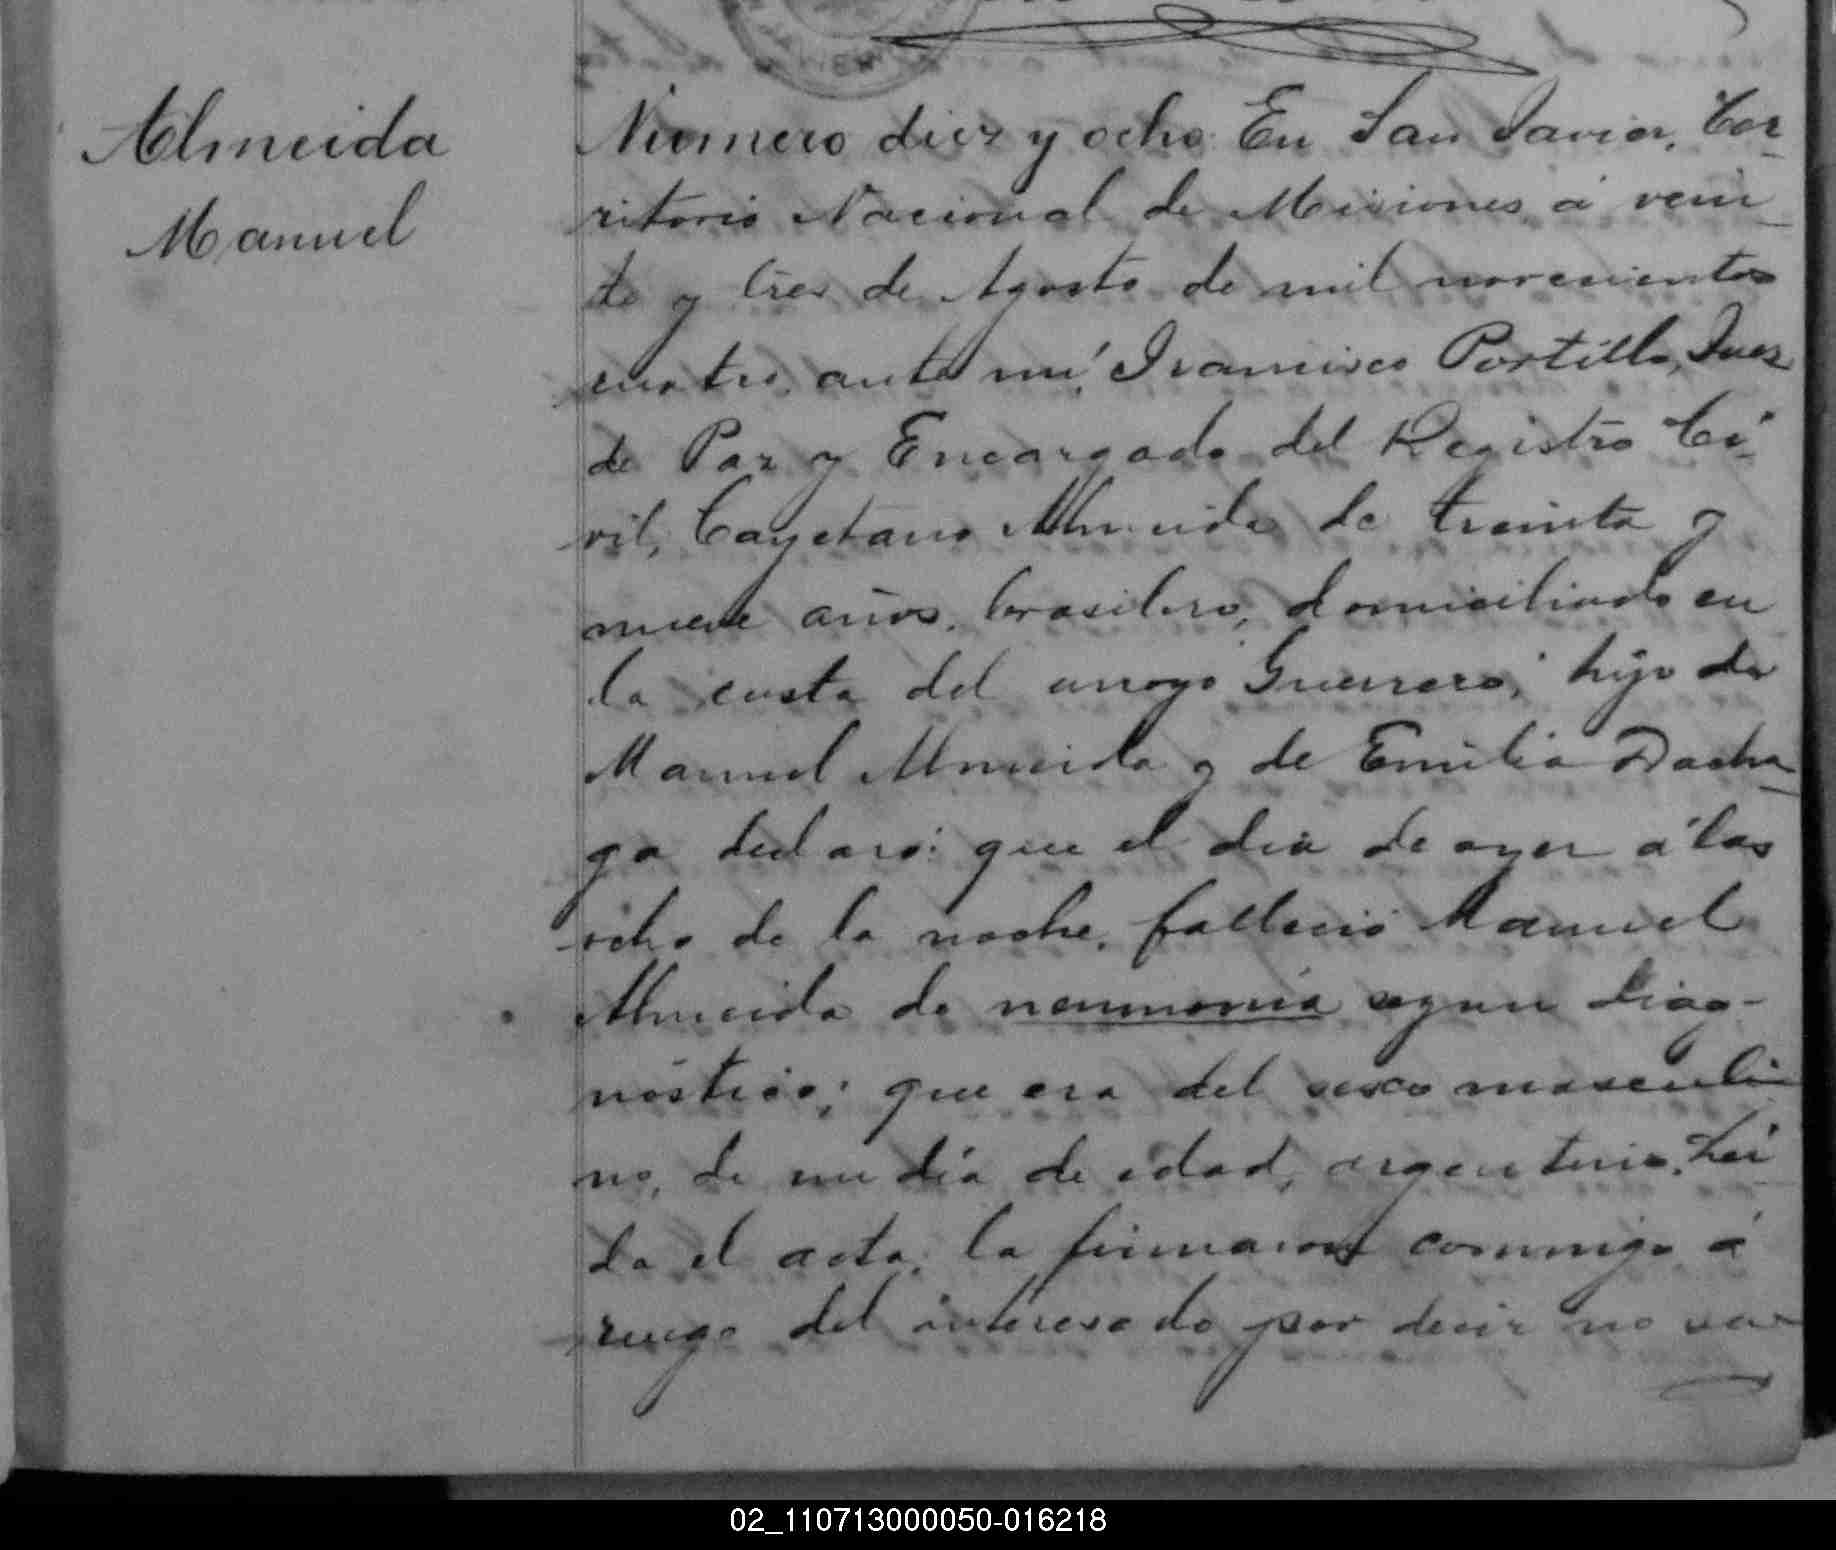 Almeida
Manuel
Número diez y ocho: En San Javier, Ter-
ritorio Nacional de Misiones á vein-
te y tres de Agosto de mil novecientos
cuatro, ante mí, Francisco Portillo, Juez
de Paz y Encargado del Registro Ci-
vil, Cayetano Almeida de treinta y
nueve años, brasilero, domiciliado en
la costa del arroyo Guerrero, hijo de
Manuel Almeida y de Emilia
ga declaró: que el dia de ayer á las
ocho de la noche, falleció Manuel
Almeida de neumonia segun diag-
nóstico; que era del sexo masculi
no, de un día de edad, argentino. Lei-
da el acta, la firmaron conmigo á
ruego del interesado por decir no sa-
02_110713000050-016218